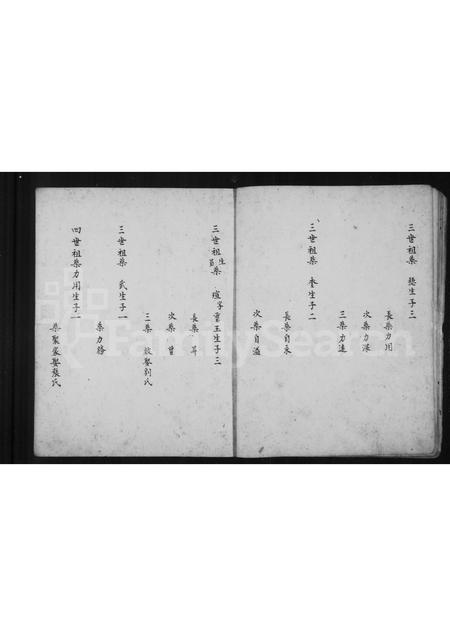 三世祖桑 懋生子三
長桑力用
次桑力深
三桑力遠
三世祖桑 奎生子二
長桑自永
次桑自溢
三世祖生員桑 瑄字重玉生子三
長桑 昇
次桑 曾
三桑 敘娶劉氏
三世祖桑 武生子一
桑力務
四世祖桑力用生子一
桑聚宸娶張氏
FamilySearch